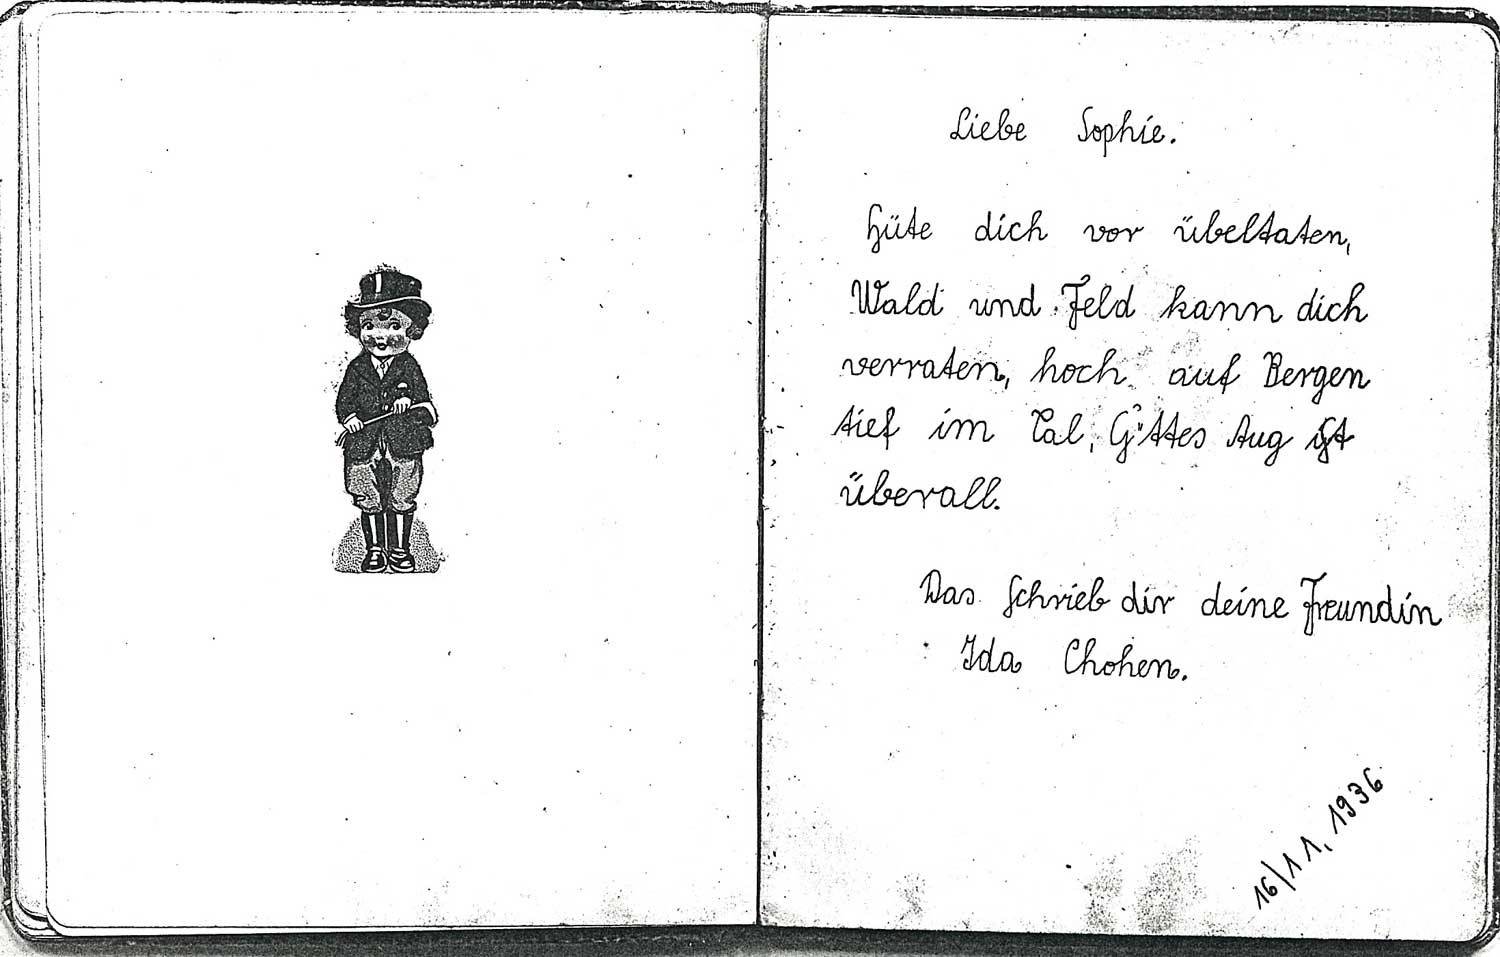 Liebe Sophie.
Hüte dich vor übeltaten,
Wald und Feld kann dich
verraten, hoch auf Bergen
tief im Tal, Gottes Aug ist
überall.
Das schrieb dir deine Freundin
Ida Chohen.
16/11, 1936